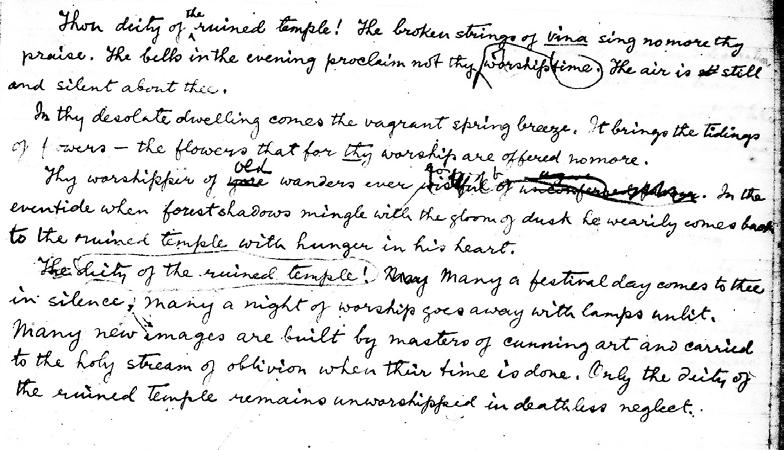 Thou diety of the ruined temple! The broken strings of vina sing no more thy
praise. The bells in the evening proclaim not thy worship time. The air is still
and silent about thee.
In thy desolate dwelling comes the vagrant spring breeze. It brings the tidings
of flowers — the flowers that for thy worship are offered no more.
Thy worshipper of old wanders ever wistful of unconferred. In the
eventide when forest shadows mingle with the gloom of dusk he wearily comes back
to the ruined temple with hunger in his heart.
The diety of the ruined temple! Many Many a festival day comes to thee
in silence, many a night of worship goes away with lamps unlit.
Many new images are built by masters of cunning art and carried
to the holy stream of oblivion when their time is done. Only the diety of
the ruined temple remains unworshipped in deathless neglect.